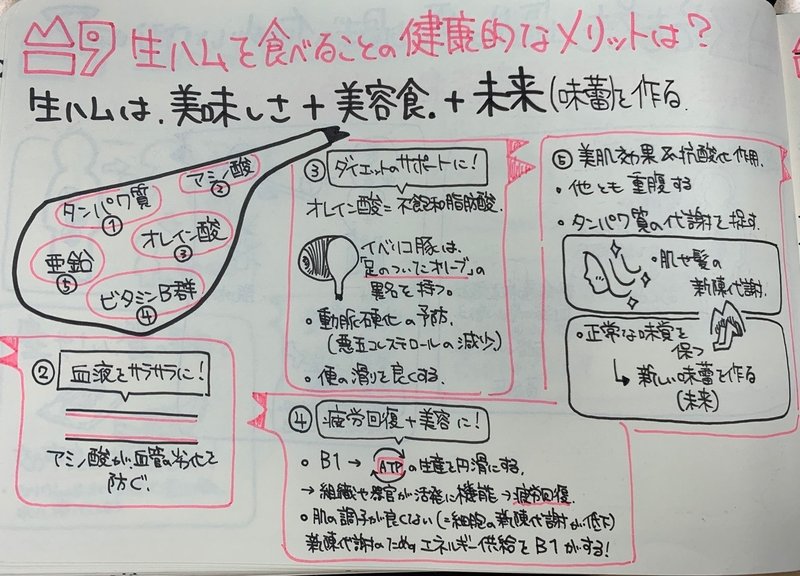 19 生ハムを食べることの健康的なメリットは？
生ハムは、美味しさ＋美容食。＋未来(味蕾)を作る
アミノ酸
②
タンパク質
①
オレイン酸
③
亜鉛
⑤
ビタミンB群
④
② 血液をサラサラに！
アミノ酸が、血管の劣化を
防ぐ。
③ ダイエットのサポートに！
オレイン酸＝不飽和脂肪酸
イベリコ豚は、
「足のついたオリーブ」の
異名を持つ。
・動脈硬化の予防、
(悪玉コレステロールの減少)
・便の滑りを良くする。
④ 疲労回復＋美容に！
○ B1 → ATPの生産を円滑にする。
→ 組織や器官が活発に機能→疲労回復
○ 肌の調子が良くない(＝細胞の新陳代謝が低下)
新陳代謝のためのエネルギー供給をB1がする！
⑤ 美肌効果＆抗酸化作用
・他とも重腹する
・タンパク質の代謝を捉す。
・肌や髪の
新陳代謝
・正常な味覚を
保つ
↳ 新しい味蕾を作る
(未来)